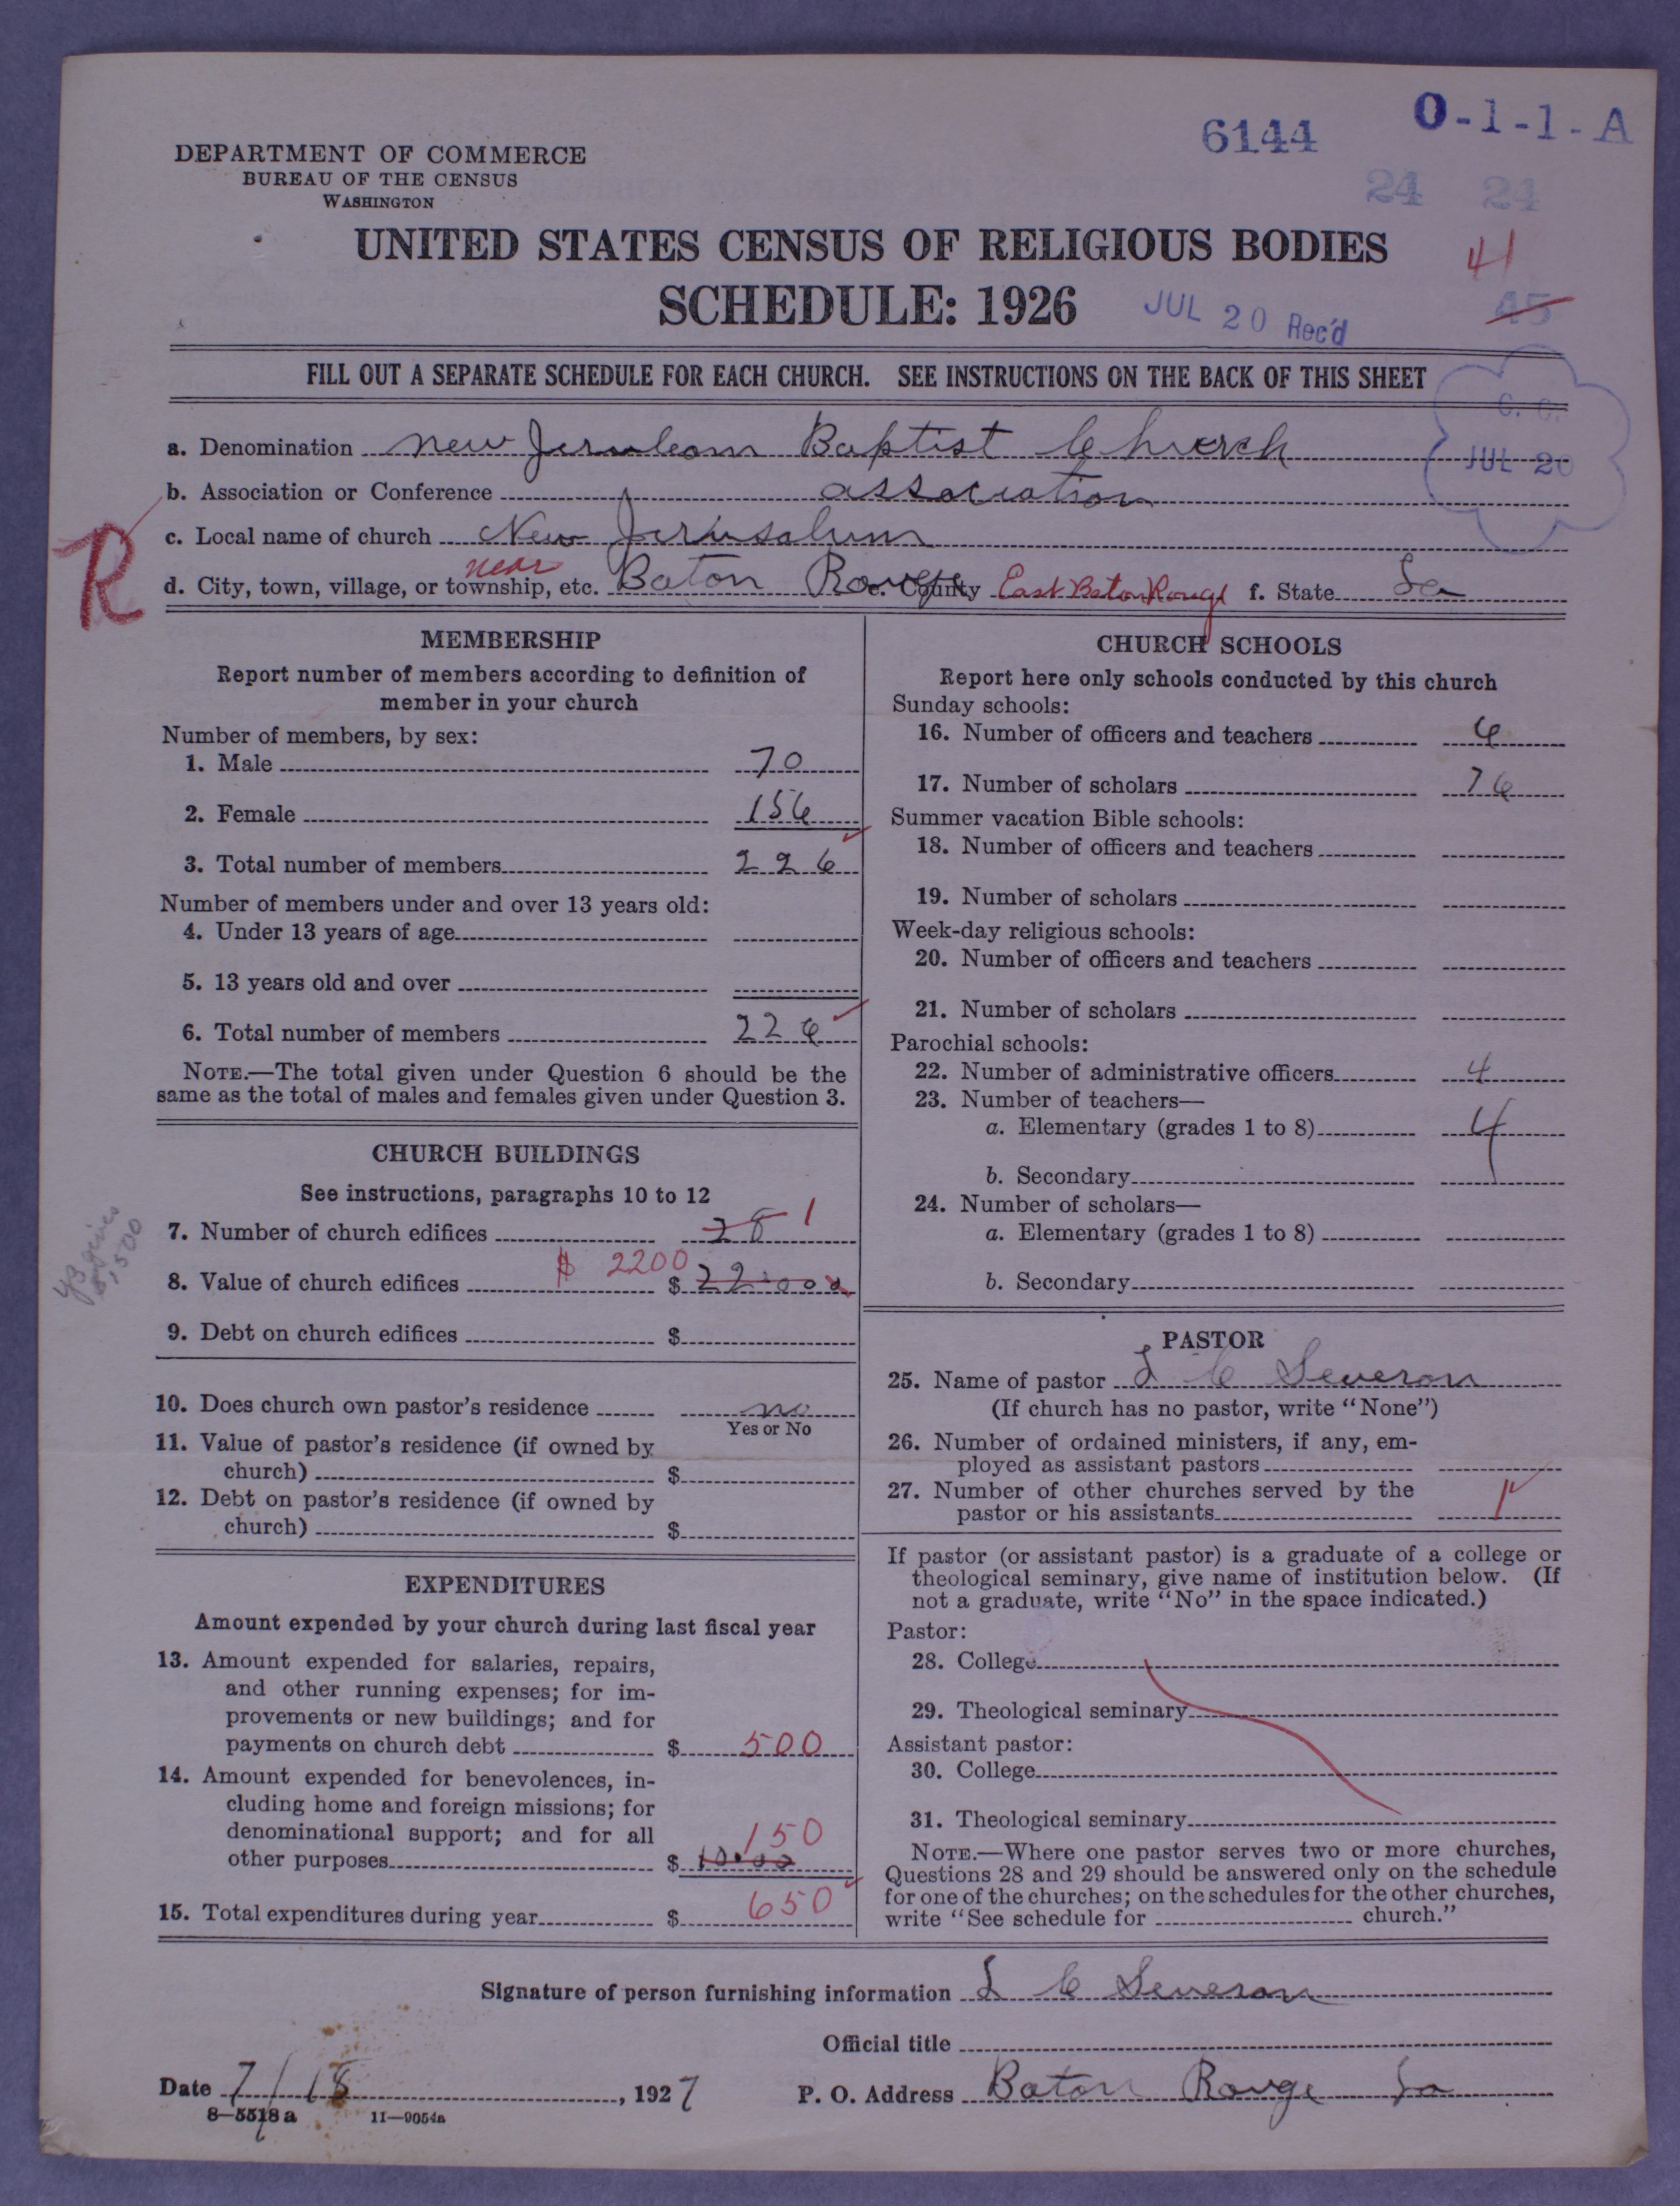 6144
O-1-1-A
DEPARTMENT OF COMMERCE
BUREAU OF THE CENSUS
WASHINGTON
24 24
UNITED STATES CENSUS OF RELIGIOUS BODIES
41
SCHEDULE: 1926
JUL 20 Rec'd
45
FILL OUT A SEPARATE SCHEDULE FOR EACH CHURCH. SEE INSTRUCTIONS ON THE BACK OF THIS SHEET
C. C.
JUL 20
a. Denomination new Jerusleam Baptist Church
b. Association or Conference association
R
c. Local name of church New Jerusalum
near
d. City, town, village, or township, etc. Baton Rouge e. County East Baton Rouge f. State La
MEMBERSHIP
Report number of members according to definition of
member in your church
Number of members, by sex:
1. Male 70
2. Female 156
3. Total number of members 226
Number of members under and over 13 years old:
4. Under 13 years of age
5. 13 years old and over
6. Total number of members 226
NOTE.—The total given under Question 6 should be the
same as the total of males and females given under Question 3.
CHURCH BUILDINGS
See instructions, paragraphs 10 to 12
7. Number of church edifices 28 1
$ 2200
8. Value of church edifices $ 22.000
9. Debt on church edifices $
10. Does church own pastor's residence no
Yes or No
11. Value of pastor's residence (if owned by
church) $
12. Debt on pastor's residence (if owned by
church) $
EXPENDITURES
Amount expended by your church during last fiscal year
13. Amount expended for salaries, repairs,
and other running expenses; for im-
provements or new buildings; and for
payments on church debt $ 500
14. Amount expended for benevolences, in-
cluding home and foreign missions; for
denominational support; and for all
150
other purposes $ 10.00
15. Total expenditures during year $ 650
CHURCH SCHOOLS
Report here only schools conducted by this church
Sunday schools:
16. Number of officers and teachers 6
17. Number of scholars 76
Summer vacation Bible schools:
18. Number of officers and teachers
19. Number of scholars
Week-day religious schools:
20. Number of officers and teachers
21. Number of scholars
Parochial schools:
22. Number of administrative officers 4
23. Number of teachers—
a. Elementary (grades 1 to 8) 4
b. Secondary
24. Number of scholars—
a. Elementary (grades 1 to 8)
b. Secondary
PASTOR
25. Name of pastor L C Severon
(If church has no pastor, write "None")
26. Number of ordained ministers, if any, em-
ployed as assistant pastors
27. Number of other churches served by the
pastor or his assistants 1
If pastor (or assistant pastor) is a graduate of a college or
theological seminary, give name of institution below. (If
not a graduate, write "No" in the space indicated.)
Pastor:
28. College
29. Theological seminary
Assistant pastor:
30. College
31. Theological seminary
NOTE.—Where one pastor serves two or more churches,
Questions 28 and 29 should be answered only on the schedule
for one of the churches; on the schedules for the other churches,
write "See schedule for church."
Signature of person furnishing information L C Severon
Official title
Date 7/18, 1927 P. O. Address Baton Rouge La
8—5518 a 11—9054a